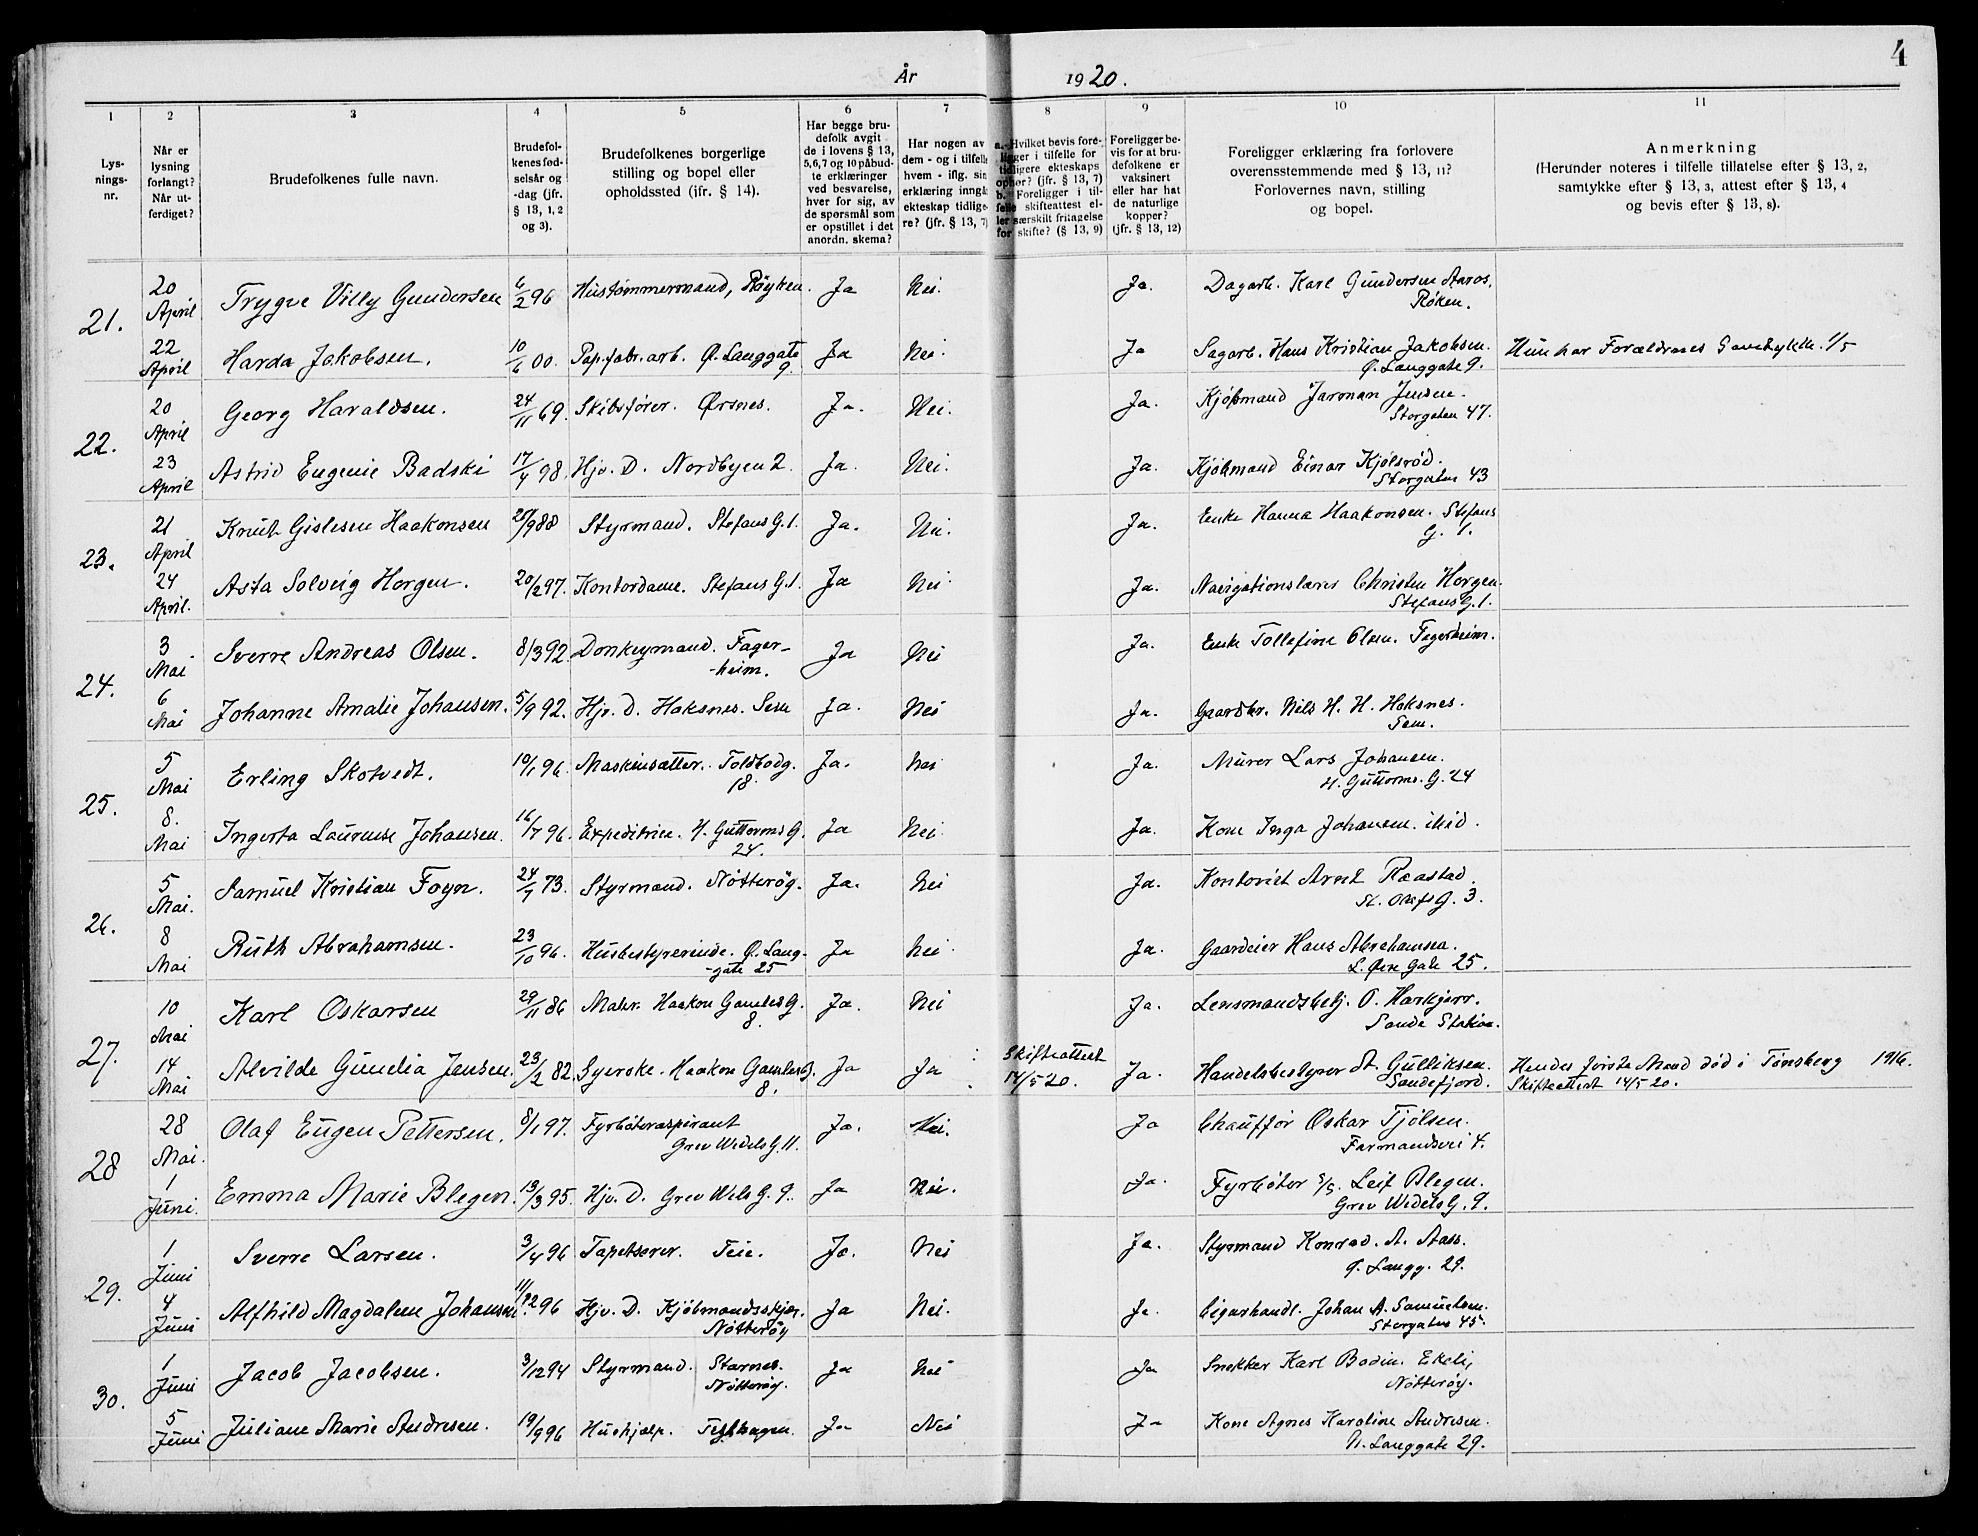 4
År 1920.
1 2 3 4 5 6 7 8 9 10 11
Lys-
nings-
nr.
Når er
lysning
forlangt?
Når ut-
ferdiget?
Brudefolkenes fulle navn.
Brudefol-
kenes fød-
selsår og
-dag (jfr.
§ 13, 1, 2
og 3).
Brudefolkenes borgerlige
stilling og bopel eller
opholdssted (jfr. § 14).
Har begge bru-
defolk avgit
de i lovens § 13,
5, 6, 7 og 10 påbud-
te erklæringer
ved besvarelse,
hver for sig, av
de spørsmål som
er opstillet i det
anordn. skema?
Har nogen av
dem - og i tilfelle
hvem - iflg. sin
erklæring inngå
ekteskap tidlige-
re? (jfr. § 13, 7)
a. Hvilket bevis fore-
ligger i tilfelle for
tidligere ekteskaps
ophør? (jfr. § 13, 7)
b. Foreligger i til-
felle skifteattest el-
ler særskilt fritagelse
for skifte? (§ 13, 9)
Foreligger be-
vis for at bru-
defolkene er
vaksinert
eller har hat
de naturlige
kopper?
(jfr. § 13, 12)
Foreligger erklæring fra forlovere
overensstemmende med § 13, 11?
Forlovernes navn, stilling
og bopel.
Anmerkning
(Herunder noteres i tilfelle tillatelse efter § 13, 2,
samtykke efter § 13, 3, attest efter § 13, 4
og bevis efter § 13, 8).
21. 20 April Trygve Villy Gundersen 6/2 96 Hustømmermand, Røyken. Ja Nei. Ja. Dagarb. Karl Gundersen Aaros,
Røken.
22 April Harda Jakobsen. 10/6 00. Pap.fabr.arb. Ø. Langgate Ja Nei. Ja Sagarb. Hans Kristian Jakobsen. Hun har Forældrenes Samtykke. 1/5
9. Ø. Langgate 9.
22. 20 April Georg Haraldsen. 24/11 69. Skibsfører. Ørsnes. Ja. Nei. Ja. Kjøbmand Jarman Jensen.
Storgaten 47.
23 April Astrid Eugenie Badski 17/4 98. Hjv. D. Nordbyen 2. Ja. Nei. Ja. Kjøbmand Einar Kjølsrød.
Storgaten 43
23. 21 April Knut Gislesen Haakonsen 88 Styrmand. Stefans G. 1. Ja. Nei. Ja. Enke Hanna Haakonsen. Stefans
G. 1.
24 April. Asta Solveig Horgen. 20/2 97. Kontordame. Stefans G. 1. Ja Nei Ja. Navigationslærer Christen Horgen.
Stefans G. 1.
24. 3 Mai Sverre Andreas Olsen. 8/3 92 Donkeymand. Fager- Ja Nei Ja. Enke Tollefine Olsen. Fagerheim.
-heim.
6 Mai Johanne Amalie Johansen. 5/9 92. Hjv. D. Haksnes. Sem Ja. Nei Ja. Gaardbr. Nils H. H. Haksnes.
Sem.
25. 5 Mai Erling Skotvedt. 10/1 96. Maskinsætter. Toldbodg. Ja. Nei Ja. Murer Lars Johansen.
18. H. Guttorms. G. 24
8. Mai Ingerta Laurense Johansen. 16/7 96. Expeditrice. H. Guttorms G. Ja Nei. Ja. Kone Inga Johansen. ibid.
24.
26. 5 Mai. Samuel Kristian Foyn. 24/7 73. Styrmand. Nøtterøy. Ja. Nei Ja. Kontorist Arnt Raastad.
St. Olafs G. 3.
8 Mai Ruth Abrahamsen. 23/10 96. Husbestyrerinde. Ø. Lang- Ja Nei Ja. Gaardeier Hans Abrahamsen.
-gate 25 L. Øvre Gate 25.
27. 10 Mai Karl Oskarsen 29/11 86 Matr. Haakon Gamles G. Ja. Nei Ja. Lensmandsbetj. O. Harkjerr.
8. Sande Station.
14 Mai Alvilde Gunelia Jensen. 23/2 82. Syerske. Haakon Gamles G. Ja Ja Skifteattest Ja. Handelsbestyrer A. Gulliksen. Hendes første Mand død i Tønsberg 1916.
8. 14/5 20. Sandefjord. Skifteattest 14/5 20.
28 28 Mai. Olaf Eugen Pettersen. 8/1 97. Fyrbøteraspirant Ja. Nei. Ja Chauffør Oskar Tjølsen.
Grev Wedels G. 11. Farmandsvei 4.
1 Juni. Emma Marie Blegen. 13/3 95. Hjv. D. Grev Wels G. 9. Ja Nei. Ja. Fyrbøter S/S. Leif Blegen.
Grev Wedels G. 9.
29. 1 Juni Sverre Larsen. 3/4 96 Tapetserer. Teie. Ja. Nei Ja. Styrmand Konrad. A. Aass.
Ø. Langg. 29.
4 Juni Alfhild Magdalene Johansen 11/12 96 Hjv. D. Kjøbmandsskjær. Ja Nei. Ja. Cigarhandl. Johan A. Samuelsen.
Nøtterøy Storgaten 45.
30. 1 Juni Jacob Jacobsen. 3/12 94 Styrmand. Starnes. Ja Nei Ja Snekker Karl Bodin. Ekeli,
Nøtterøy. Nøtterøy.
5 Juni Juliane Marie Andresen. 19/9 96 Hushjælp. Ja Nei Ja Kone Agnes Karoline Andresen.
N. Langgate 29.